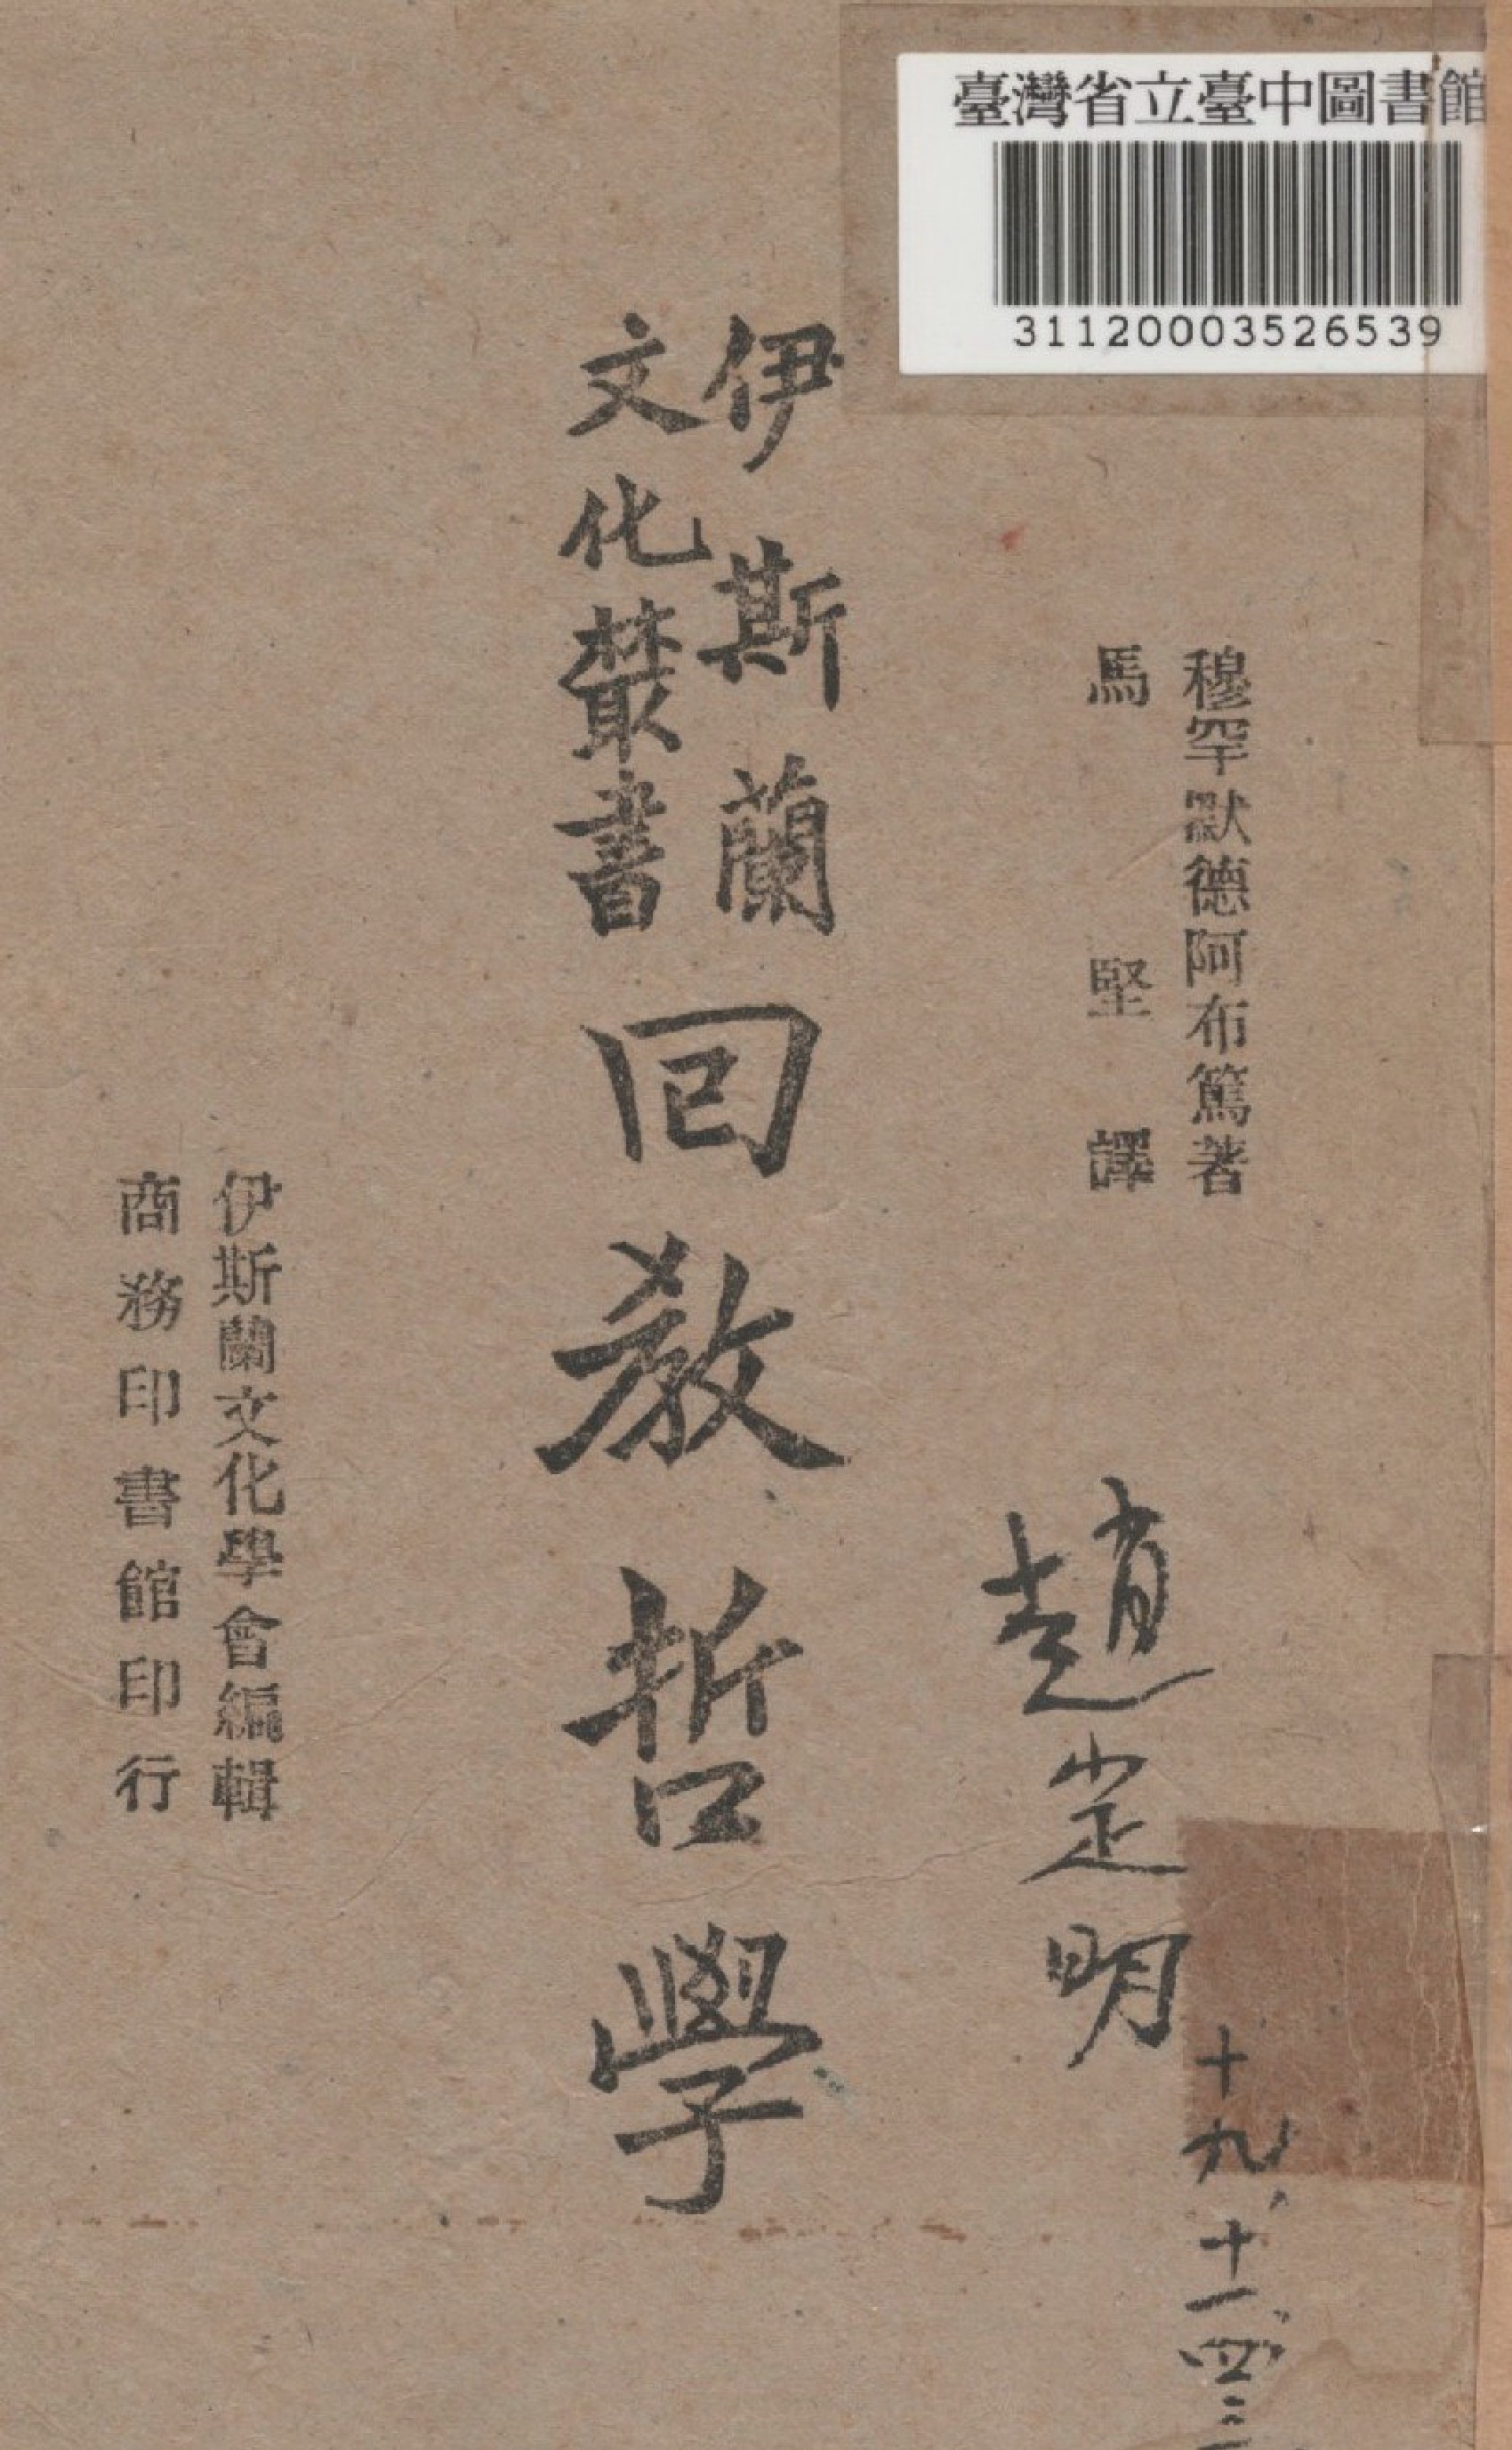 臺灣省立臺中圖書館
31120003526539
穆罕默德阿布篤著
馬堅譯
趙定明
十九、十一、四三
伊斯蘭
文化叢書
回教哲學
伊斯蘭文化學會編輯
商務印書館印行